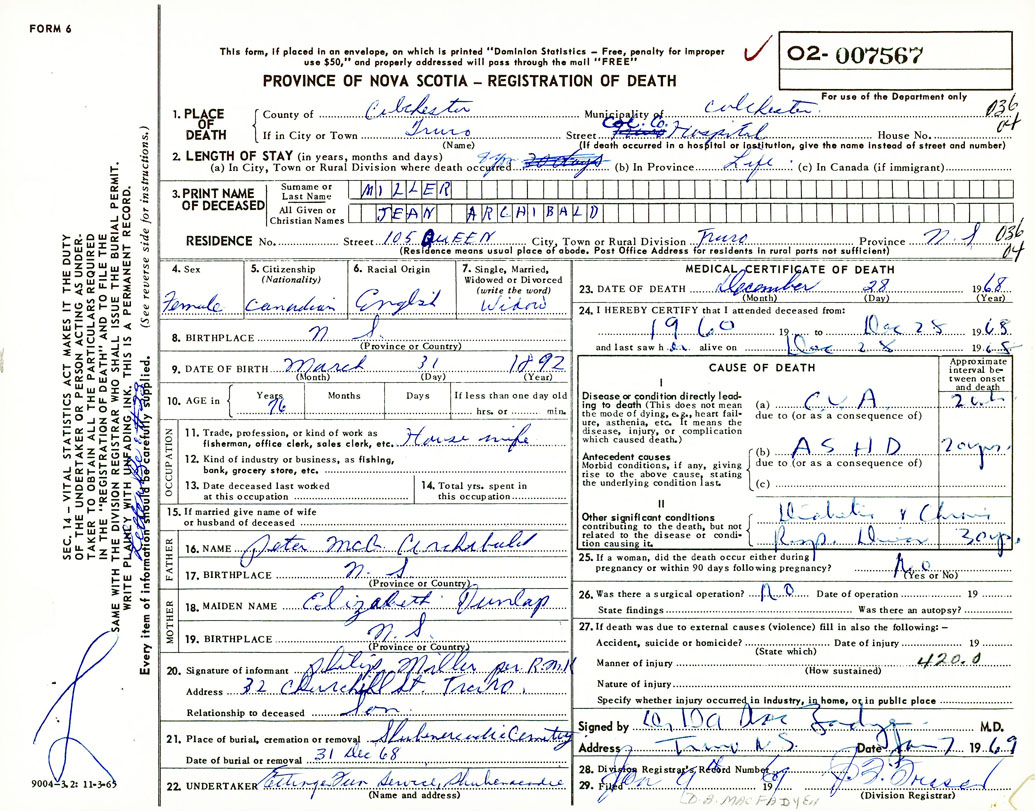 FORM 6
This form, if placed in an envelope, on which is printed "Dominion Statistics – Free, penalty for improper
use $50," and properly addressed will pass through the mail "FREE"
O2- 007567
PROVINCE OF NOVA SCOTIA – REGISTRATION OF DEATH
For use of the Department only
1. PLACE OF DEATH
County of Colchester
Municipality of Colchester
036
04
If in City or Town Truro
(Name)
Street Col. Co. Hospital House No.
(If death occurred in a hospital or institution, give the name instead of street and number)
2. LENGTH OF STAY (in years, months and days)
(a) In City, Town or Rural Division where death occurred (b) In Province Life (c) In Canada (if immigrant)
3. PRINT NAME OF DECEASED
Surname or Last Name MILLER
All Given or Christian Names JEAN ARCHIBALD
RESIDENCE No. Street 105 QUEEN City, Town or Rural Division Truro Province N.S
036
04
(Residence means usual place of abode. Post Office Address for residents in rural parts not sufficient)
4. Sex
Female
5. Citizenship
(Nationality)
Canadian
6. Racial Origin
English
7. Single, Married,
Widowed or Divorced
(write the word)
Widow
8. BIRTHPLACE N S.
(Province or Country)
9. DATE OF BIRTH March 31 1892
(Month) (Day) (Year)
10. AGE in
Years
76
Months
Days
If less than one day old
hrs. or min.
OCCUPATION
11. Trade, profession, or kind of work as
fisherman, office clerk, sales clerk, etc. House wife
12. Kind of industry or business, as fishing,
bank, grocery store, etc.
13. Date deceased last worked
at this occupation
14. Total yrs. spent in
this occupation
15. If married give name of wife
or husband of deceased
FATHER
16. NAME Peter McG. Archibald
17. BIRTHPLACE N. S.
(Province or Country)
MOTHER
18. MAIDEN NAME Elizabeth Dunlap
19. BIRTHPLACE N. S.
(Province or Country)
20. Signature of informant Philip Miller per R.M.K
Address 32 Churchill St. Truro.
Relationship to deceased Son
21. Place of burial, cremation or removal Shubenacadie Cemetery
Date of burial or removal 31 Dec 68
22. UNDERTAKER Ettinger Fun Service, Shubenacadie
(Name and address)
MEDICAL CERTIFICATE OF DEATH
23. DATE OF DEATH December 28 1968
(Month) (Day) (Year)
24. I HEREBY CERTIFY that I attended deceased from:
1960 19 to Dec 28 1968
and last saw her alive on Dec 28 1968
CAUSE OF DEATH
Approximate
interval be-
tween onset
and death
I
Disease or condition directly lead-
ing to death (This does not mean
the mode of dying, e.g., heart fail-
ure, asthenia, etc. It means the
disease, injury, or complication
which caused death.)
(a) C.V.A.
due to (or as a consequence of)
Antecedent causes
Morbid conditions, if any, giving
rise to the above cause, stating
the underlying condition last.
(b) A S H D 20 yrs.
due to (or as a consequence of)
(c)
II
Other significant conditions
contributing to the death, but not
related to the disease or condi-
tion causing it.
Diabetes & Chronic
30 yrs.
25. If a woman, did the death occur either during
pregnancy or within 90 days following pregnancy? No
(Yes or No)
26. Was there a surgical operation? No Date of operation 19
State findings Was there an autopsy?
27. If death was due to external causes (violence) fill in also the following: –
Accident, suicide or homicide? Date of injury 19
(State which)
Manner of injury 420.0
(How sustained)
Nature of injury
Specify whether injury occurred in industry, in home, or in public place
Signed by M.D.
Address Truro N.S. Date Jan 7 1969
28. Division Registrar's Record Number
29. Filed Jan 9th 1969
(Division Registrar)
(D.A. MACFADYEN
SEC. 14 – VITAL STATISTICS ACT MAKES IT THE DUTY
OF THE UNDERTAKER OR PERSON ACTING AS UNDER-
TAKER TO OBTAIN ALL THE PARTICULARS REQUIRED
IN THE "REGISTRATION OF DEATH" AND TO FILE THE
SAME WITH THE DIVISION REGISTRAR WHO SHALL ISSUE THE BURIAL PERMIT.
WRITE PLAINLY WITH UNFADING INK. THIS IS A PERMANENT RECORD.
Every item of information should be carefully supplied. (See reverse side for instructions.)
9004–3.2: 11-3-65